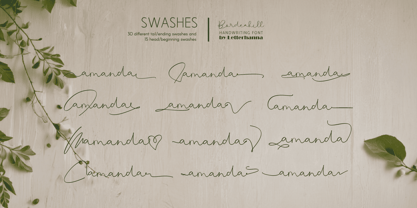 SWASHES
30 different tail/ending swashes and
15 head/beginning swashes
Borderhill
HANDWRITING FONT
by Letterhanna
amanda amanda amanda
amanda amanda amanda
amanda amanda amanda
amanda amanda amanda